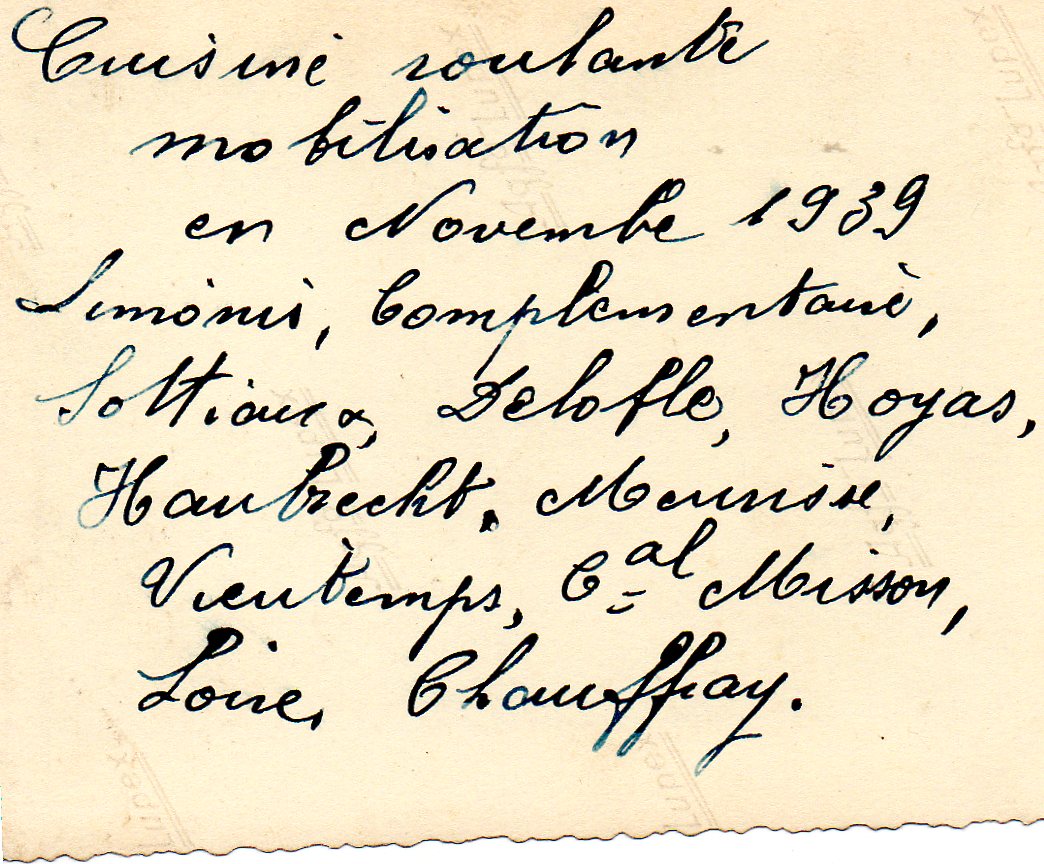 Cuisine roulante
mobilisation
en Novembe 1939
Limonis, Complementaire,
Solttiaux, Delofle, Hoyas,
Haubrecht, Meunise,
Vieutemps, Cal Misson,
Loire, Chauffray.
Lupex